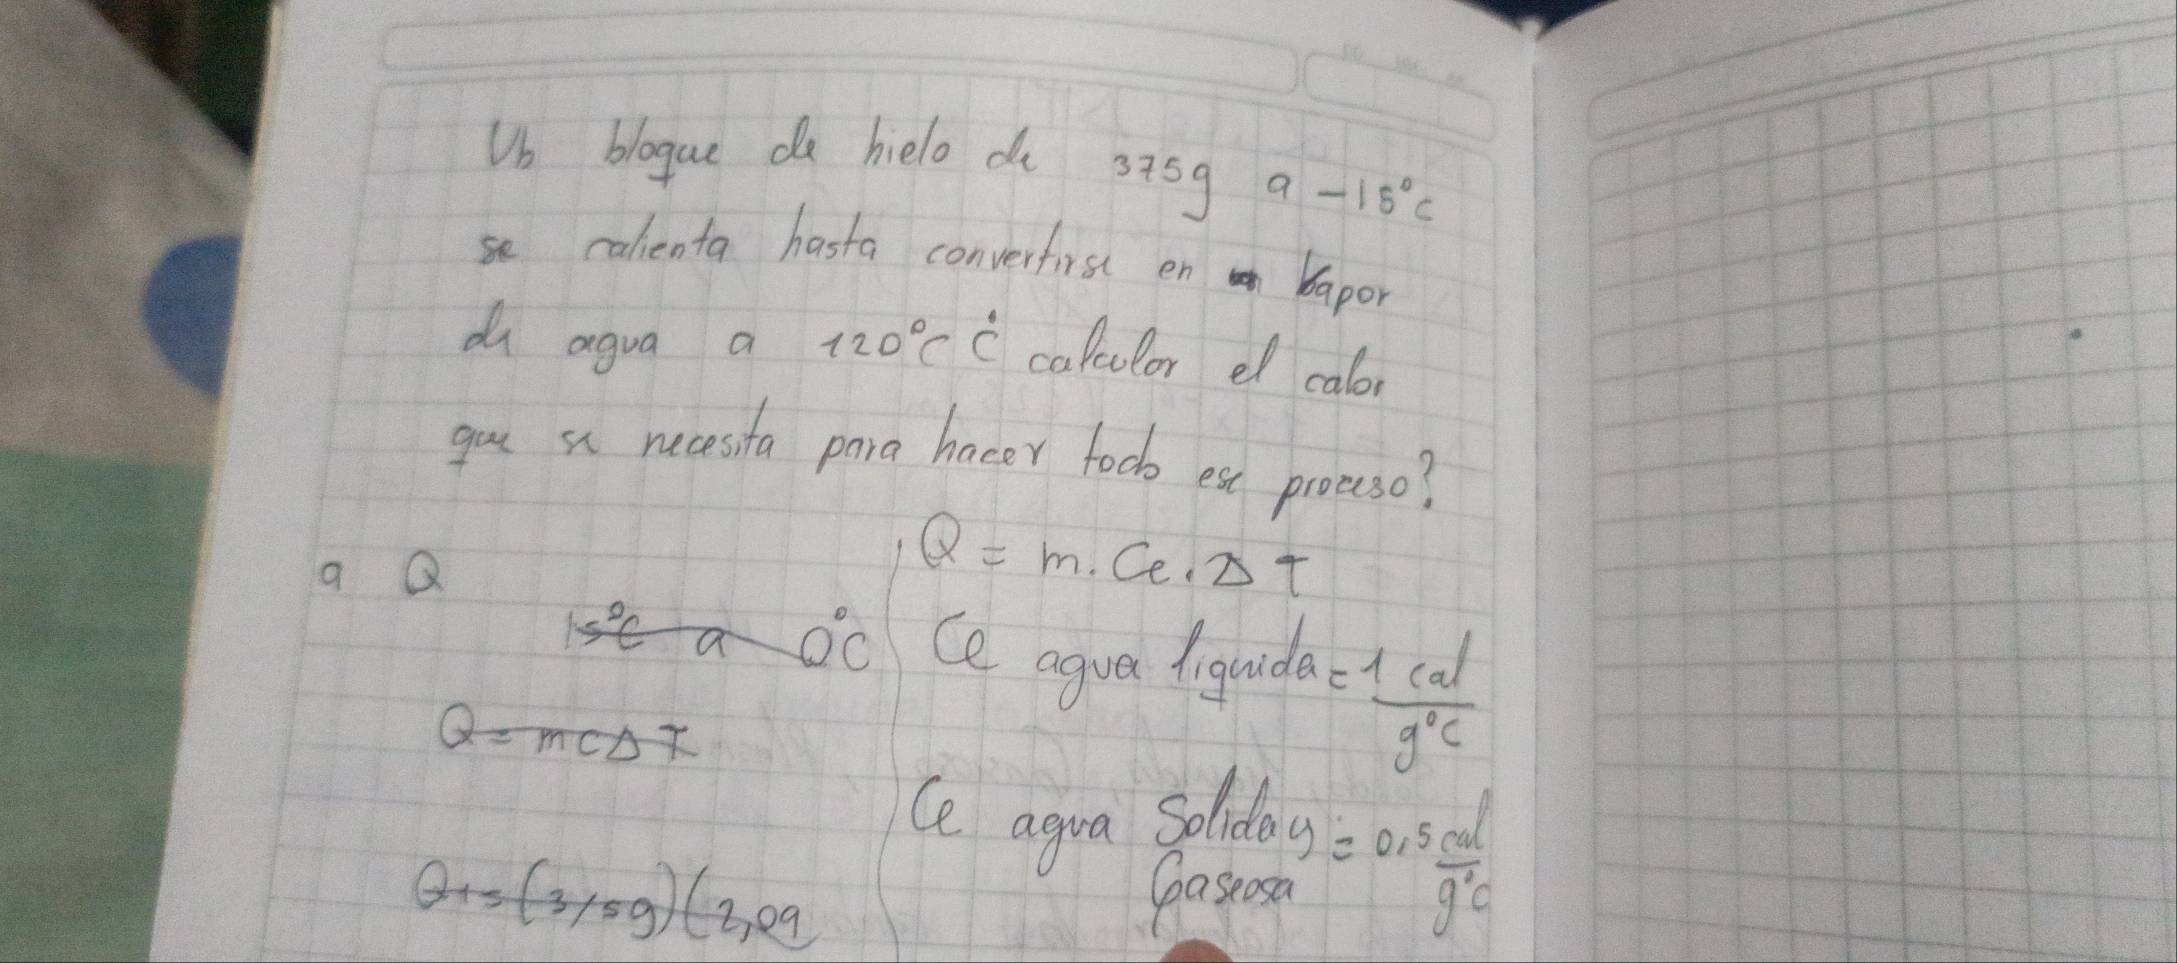 Un bloque de hielo de 375g a -15°C
se calienta hasta convertirse en vapor
de agua a 120°C ¿ calcular el calor
que se necesita para hacer todo ese proceso?
a Q
15°C a 0°C
Q = mCΔT
(375g)(2,09
Q = m. Ce. ΔT
Ce agua liquida = 1 cal/g°C
Ce agua Solida y = 0,5 cal/g°C
Gaseosa